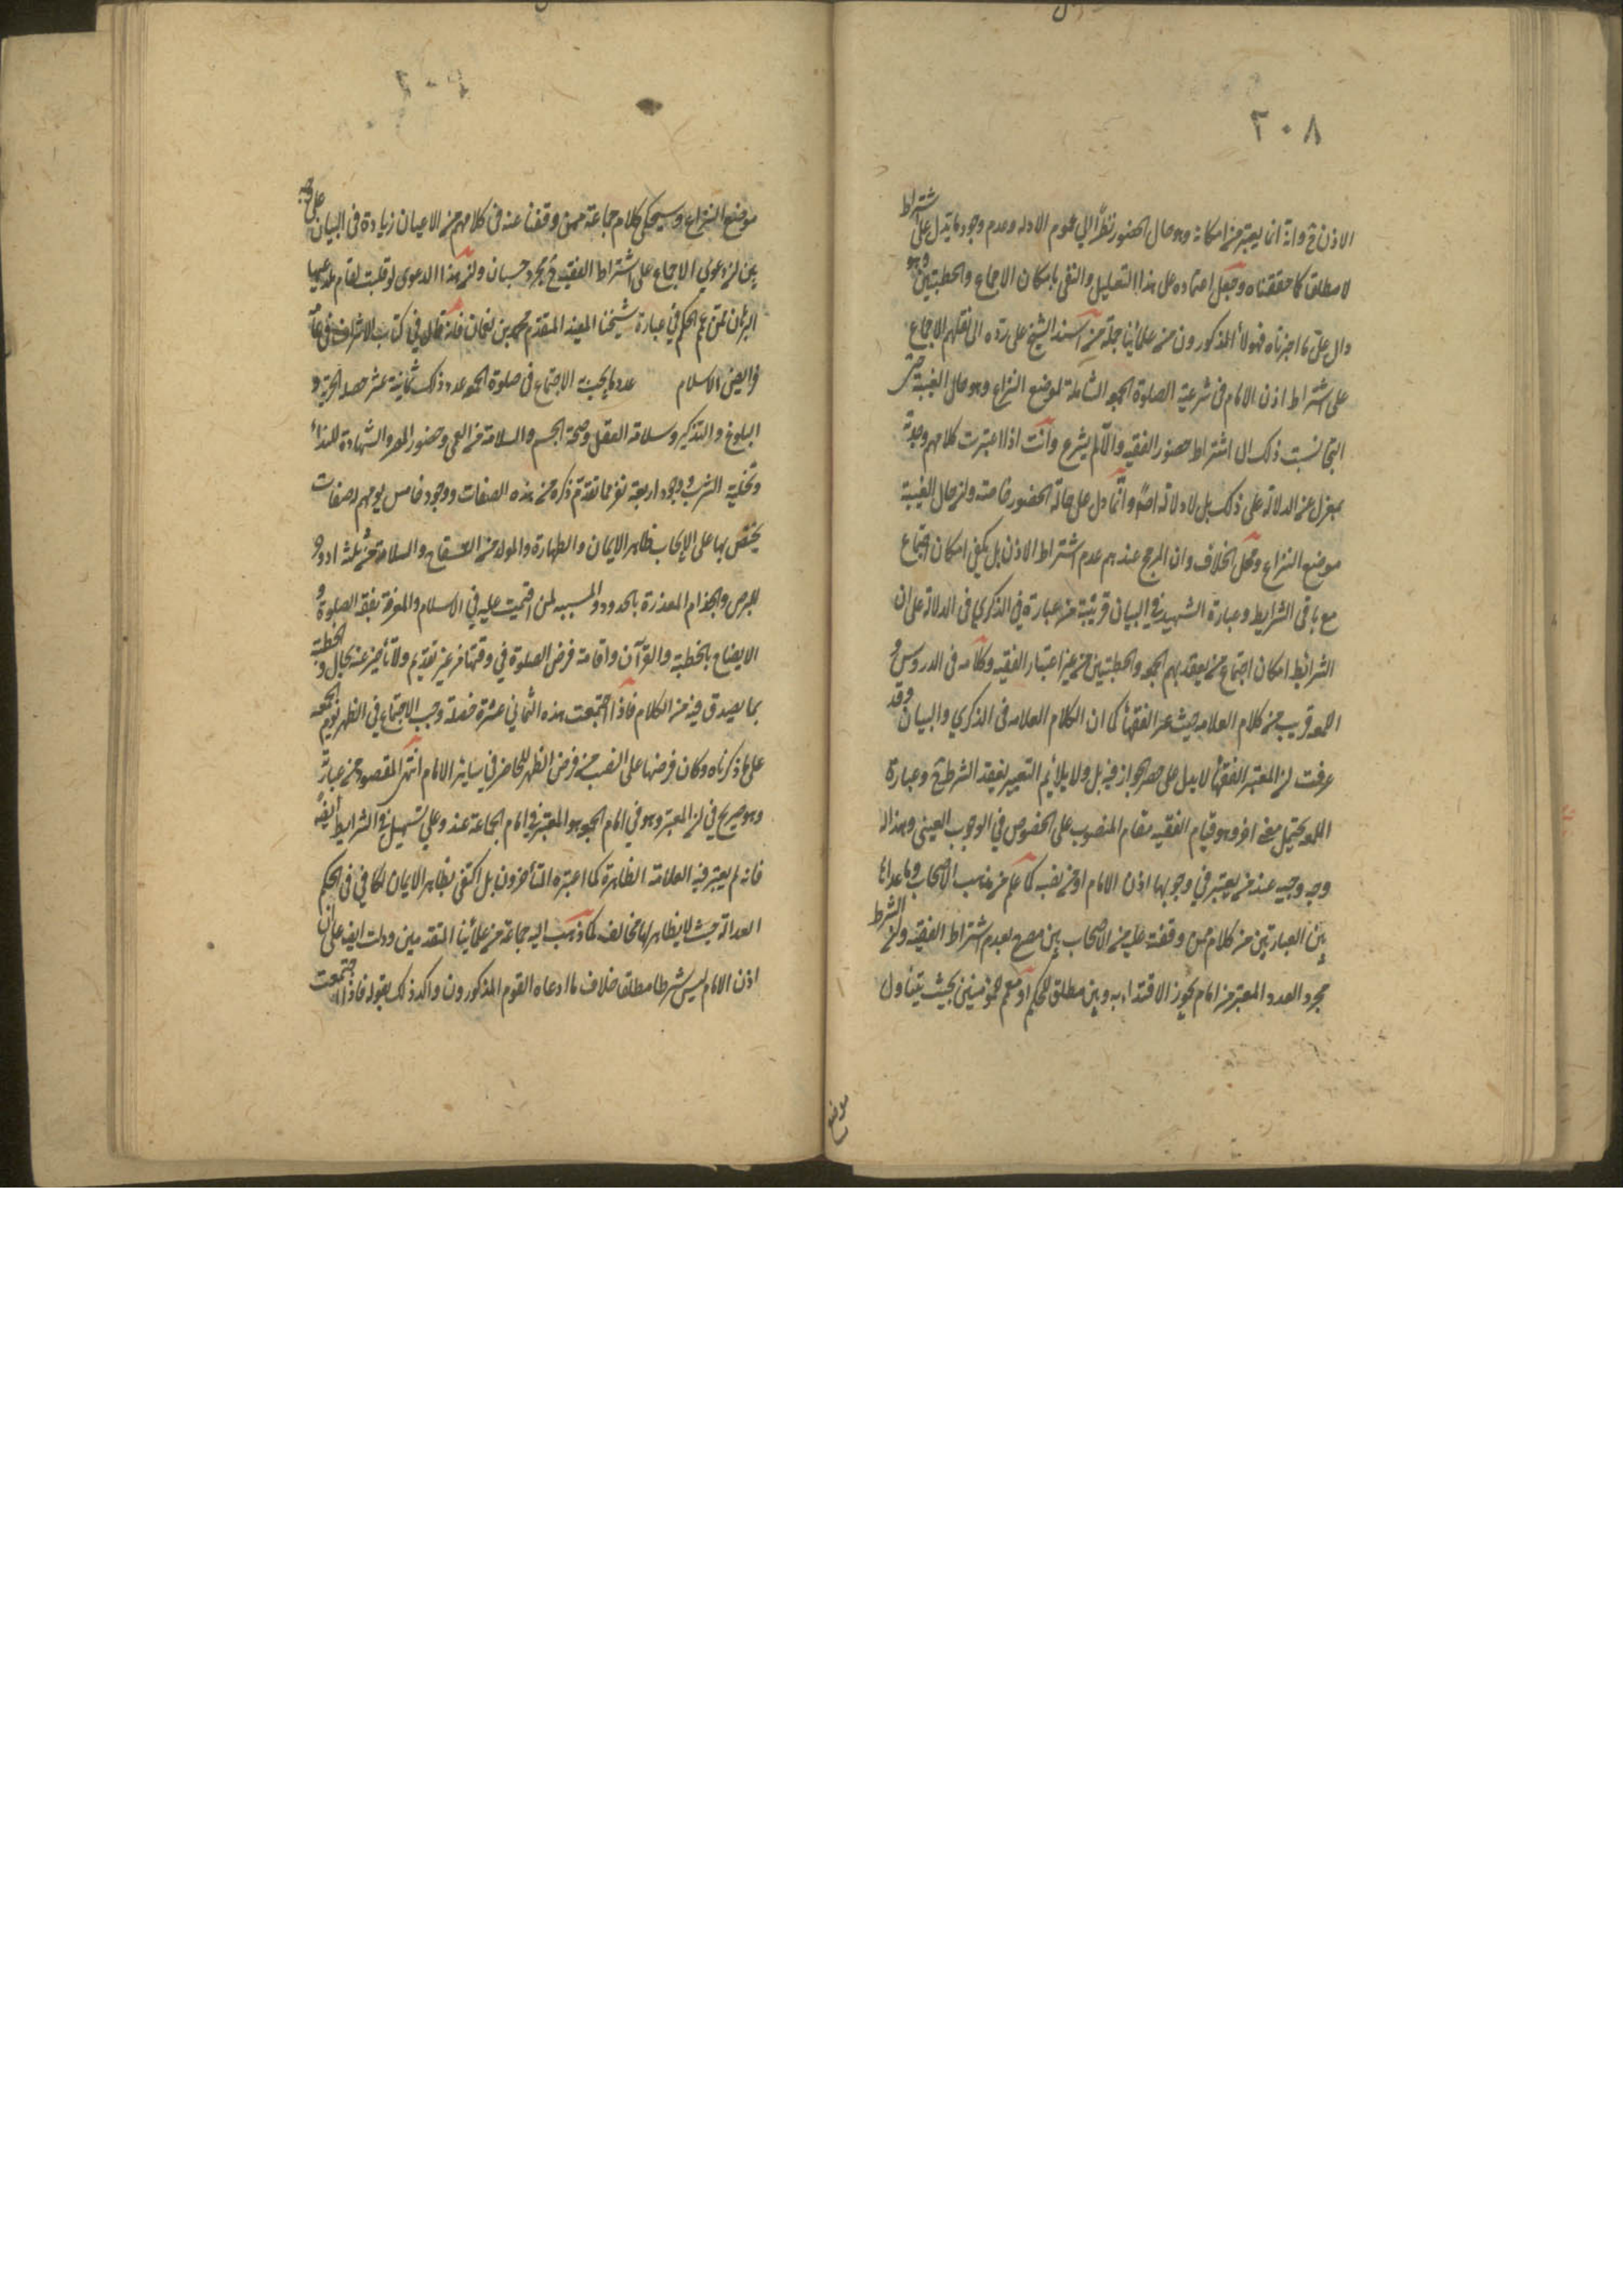 ٢٠٨
الاذن ح وانه ان يعتبر من امكانه وهو حال الحضور نظرا الى عموم الادلة وعدم وجود ما يدل على اشتراط
لا مطلقا كما حققناه وجعل اعتماده على هذا التعليل والنفي بامكان الاجماع والخطبتين وهو
دال على ما اخبرناه فهولاء المذكورون من علمائنا جملة من اسند الشيخ على رده الى نقلهم الاجماع
على اشتراط اذن الامام في شرعية الصلوة الجمعة الشاملة لموضع النزاع وهو حال الغيبة حتى
التجا نسبت ذلك الى اشتراط حضور الفقيه والا لم يشرع وانت اذا اعتبرت كلامهم وجدته
بمعزل عن الدلالة على ذلك بل لا دلالة له اصلا وانما دل على حالة الحضور خاصة وان حال الغيبة
موضع النزاع ومحل الخلاف وان المرجح عندهم عدم اشتراط الاذن بل يكفي امكان اجتماع
مع باقي الشرايط وعبارة الشهيد في البيان قريبة من عبارة في الذكرى في الدلالة على ان
الشرائط امكان اجتماع من يعقد بهم الجمعة والخطبتين من غير اعتبار الفقيه وكلامه في الدروس و
اللمعة قريب من كلام العلامة حيث عبر الفقهاء كما ان الكلام العلامة في الذكرى والبيان وقد
عرفت ان المعتبر الفقهاء لا يدل على حصر الجواز فيه بل ولا يلايم التعبير بفقد الشرط ح وعبارة
اللمعة يحتمل معنى اخر وهو قيام الفقيه مقام المنصوب على الخصوص في الوجوب العيني وهذا له
وجه وجيه عند من يعتبر في وجوبها اذن الامام او من نصبه كما علم من مذهب الاصحاب وما عداها
بين العبارتين من كلام من وقفت عليه من الاصحاب بين مصرح بعدم اشتراط الفقيه وان الشرط
مجرد العدد المعتبر من امام يجوز الاقتداء به وبين مطلق للحكم او معمم للمؤمنين بحيث يتناول
موضع
موضع النزاع وسيحكى كلام جماعة ممن وقفنا عنه في كلامهم من الاعيان زيادة في البيان على وجه
يبين ان دعوى الاجماع على اشتراط الفقيه ح مجرد حسبان وان هذا الدعوى لو قلبت لقام مدعيها
البرهان فمن عمم الحكم في عبارة شيخنا المفيد المتقدم محمد بن نعمان فانه قال في كتاب الاشراف في عامة
فرايض الاسلام عدد ما يجب به الاجتماع في صلوة الجمعة عدد ذلك ثمانية عشر خصلة الحرية و
البلوغ والتذكير وسلامة العقل وصحة الجسم والسلامة من العمى وحضور المصر والشهادة للنداء
وتخلية السرب ووجود اربعة نفر بما تقدم ذكره من هذه الصفات ووجود خامس يؤمهم له صفات
يختص بها على الايجاب ظاهر الايمان والطهارة والمولد من السفاح والسلامة من ثلثة ادواء
البرص والجذام المعذرة بالحدود والمسببة لمن اقيمت عليه في الاسلام والمعرفة بفقه الصلوة و
الايضاح بالخطبة والقرآن واقامة فرض الصلوة في وقتها من غير تقديم ولا تأخير عنه بحال والخطبة
بما يصدق فيه من الكلام فاذا اجتمعت هذه الثماني عشرة خصلة وجب الاجتماع في الظهر يوم الجمعة
على ما ذكرناه وكان فرضها على النصف من فرض الظهر للحاضر في ساير الايام انتهى المقصود من عبارته
وهو صريح في ان المعتبر وهو في امام الجمعة هو المعتبر في امام الجماعة عنده وعلى تسهيل في الشرايط ايضا
فانه لم يعتبر فيه العدالة الظاهرة كما اعتبره المتأخرون بل اكتفى بظاهر الايمان الكافي في الحكم
العدالة حيث لا يظاهر لها مخالف كما ذهب اليه جماعة من علمائنا المتقدمين ودلت ايضا على ان
اذن الامام ليس شرطا مطلقا خلاف ما ادعاه القوم المذكورون واكد ذلك بقوله فاذا اجتمعت